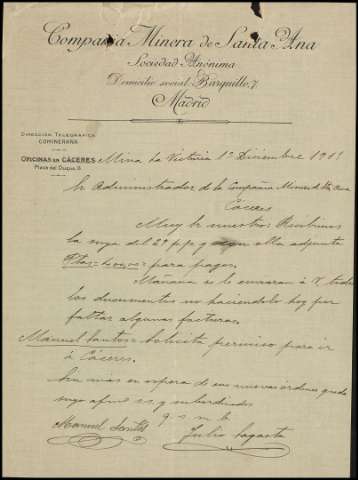 Compañia Minera de Santa Ana
Sociedad Anónima
Domicilio social: Barquillo, 7
Madrid
DIRECCIÓN TELEGRÁFICA
COMINERANA
OFICINAS EN CÁCERES
Plaza del Duque, 8
Mina La Victoria 1º Diciembre 1911
Sr Administrador de la Compañia Minera de Sta Ana
Cáceres
Muy Sr nuestro: Recibimos
la suya del 2º p.p. y ella adjunta
Ptas= para pagos.
Mañana se le enviaran á V. todos
los documentos no haciendolo hoy por
faltar algunas facturas.
Manuel Santos= Solicita permiso para ir
á Cáceres.
Sin mas en espera de sus nuevas órdenes queda
suyo afmo s.s. y subordinados
q. s. m. b.
Manuel Santos Julio Sagasta